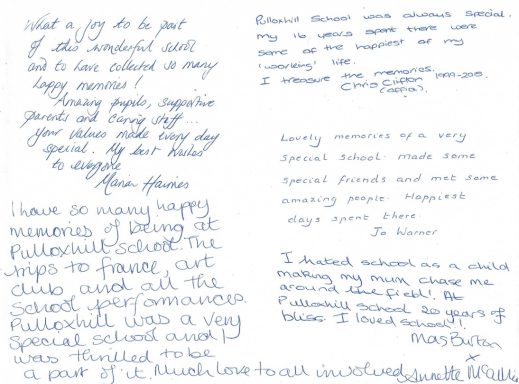 What a joy to be part
of this wonderful school
and to have collected so many
happy memories!
Amazing pupils, supportive
parents and caring staff...
your values made every day
special. My best wishes
to everyone
Maria Haines
I have so many happy
memories of being at
Pulloxhill School. The
trips to france, art
club and all the
school performances.
Pulloxhill was a very
special school and I
was thrilled to be
a part of it. Much love to all involved Annette
Pulloxhill School was always special.
My 16 years spent there were
some of the happiest of my
'working' life.
I treasure the memories.
Chris Clifton 1999-2015.
Lovely memories of a very
special school. made some
special friends and met some
amazing people. Happiest
days spent there.
Jo Warner
I hated school as a child
making my mum chase me
around the field!. At
Pulloxhill School 20 years of
bliss. I loved school!.
Mrs Burton
x